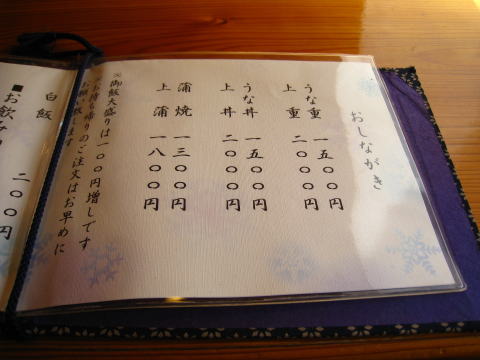 おしながき
うな重 一五〇〇円
上重 二〇〇〇円
うな丼 一五〇〇円
上丼 二〇〇〇円
蒲焼 一三〇〇円
上蒲 一八〇〇円
※御飯大盛りは一〇〇円増しです
お持ち帰りのご注文はお早めに
お願い致します
白飯 二〇〇円
■お飲み